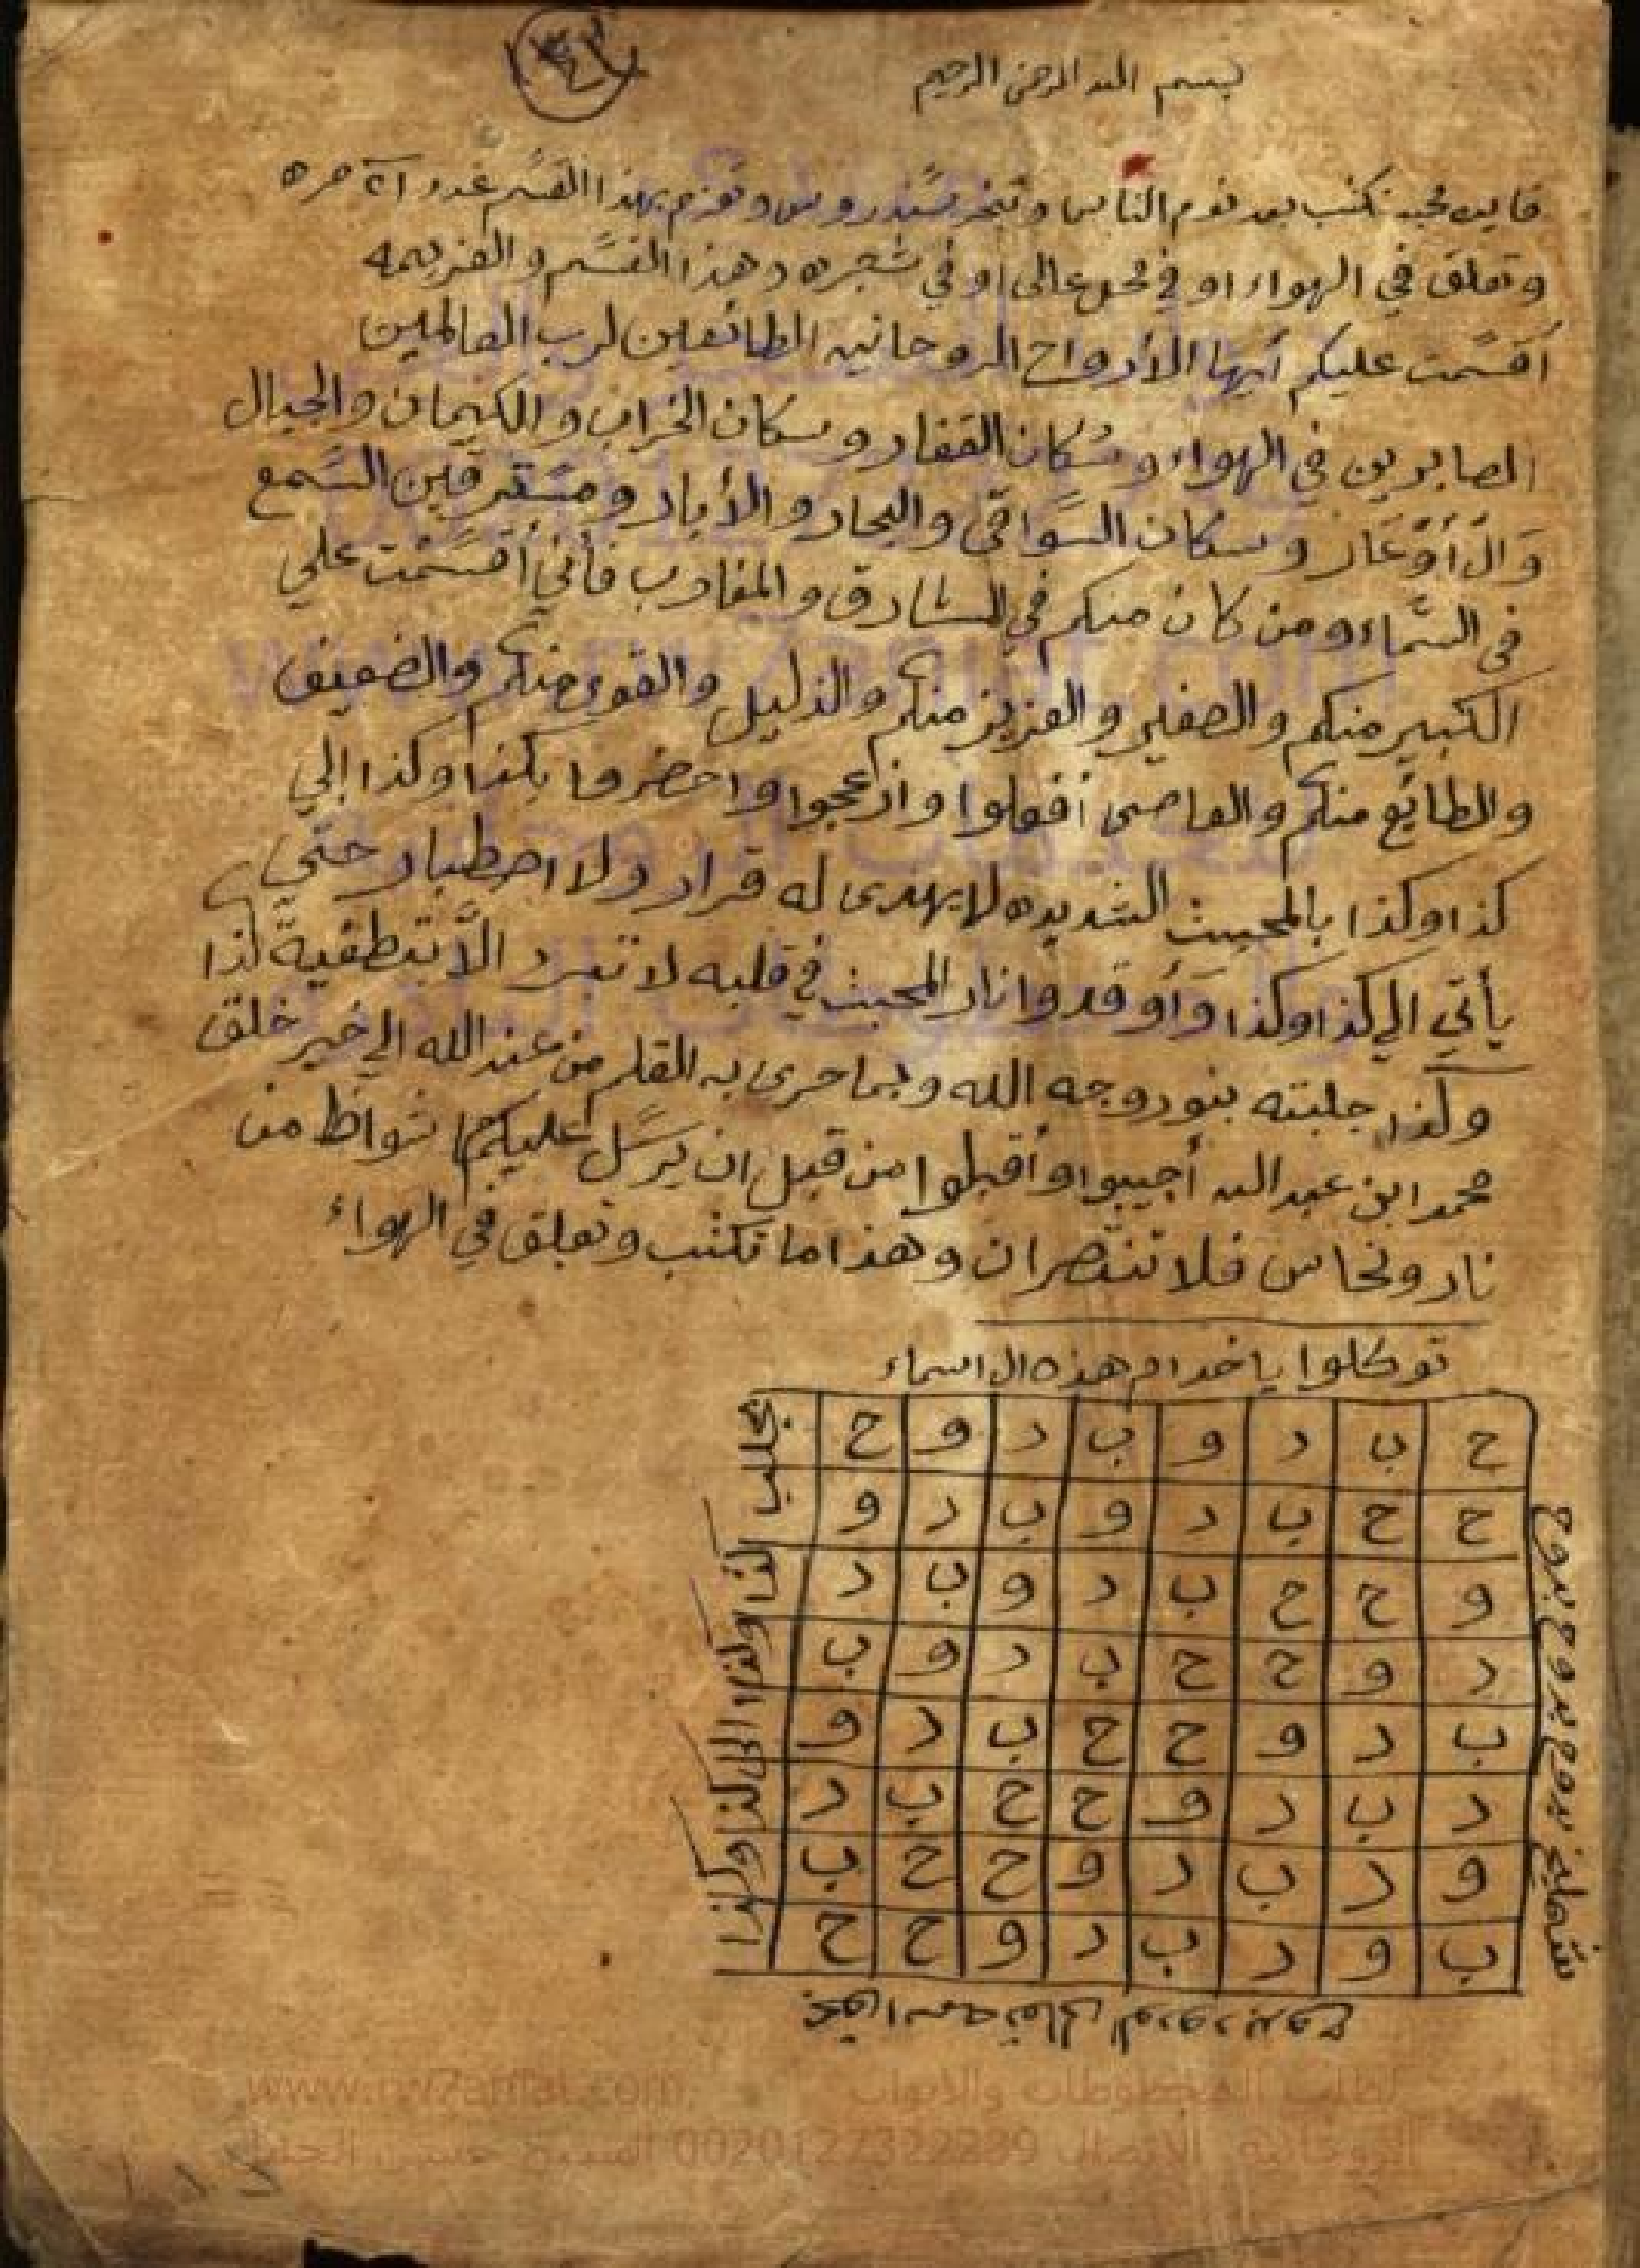 بسم الله الرحمن الرحيم
تكتب بعد نوم الناس وتبخر بسندروس وتعزم بهذا القسم عدد مره
وتعلق في الهواء او في محل عالى او في شجره وهذا القسم والعزيمه
أقسمت عليكم أيها الأرواح الروحانيه الطائعين لرب العالمين
الصابرين في الهواء وسكان القفار وسكان الخراب والكيمان والجبال
وال أوعار وسكان السواقى والبحار والأبار ومسترقين السمع
في السماء ومن كان منكم في المشارق والمغارب فأني أقسمت علي
الكبير منكم والصغير والعزيز منكم والذليل والقوي منكم والضعيف
والطائع منكم والعاصى أفعلوا وازعجوا واحضروا بكذا وكذا إلي
كذا وكذا بالمحبت الشديده لا يهدى له قرار ولا اصطبار حتي
يأتي الي كذا وكذا وأوقدوا نار المحبت في قلبه لا تبرد الا كذا
وكذا جلبته بنور وجه الله وبما جرى به القلم من عند الله الي خير خلق
محمد ابن عبد الله أجيبوا وأقبلوا من قبل ان يرسل عليكما شواظ من
نار ونحاس فلا تنتصران وهذا ما تكتب وتعلق في الهواء
توكلوا يا خدام هذه ال اسماء
ح ب د و ب د و ح
ح ح ب د و ب د و
و ح ح ب د و ب د
د و ح ح ب د و ب
ب د و ح ح ب د و
د ب د و ح ح ب د
و د ب د و ح ح ب
ب و د ب د و ح ح
بدوح بدوح بدوح
بجلب كذا وكذا الى كذا وكذا
www.rw7anial.com
لطلب المخطوطات والابواب
الروحانيه الاتصال 0020127322289 الشيخ